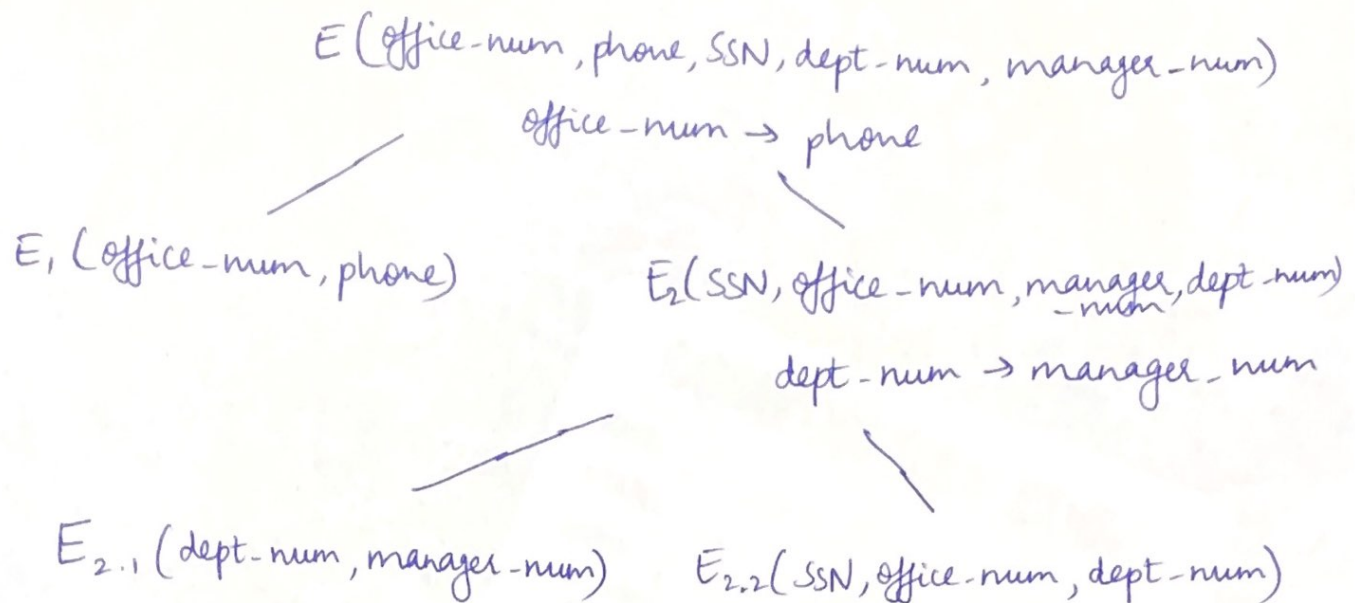 E(office-num, phone, SSN, dept-num, manager-num)
office-num → phone
E₁ (office-num, phone)
E₂(SSN, office-num, manager-num, dept-num)
dept-num → manager-num
E₂.₁ (dept-num, manager-num)
E₂.₂ (SSN, office-num, dept-num)